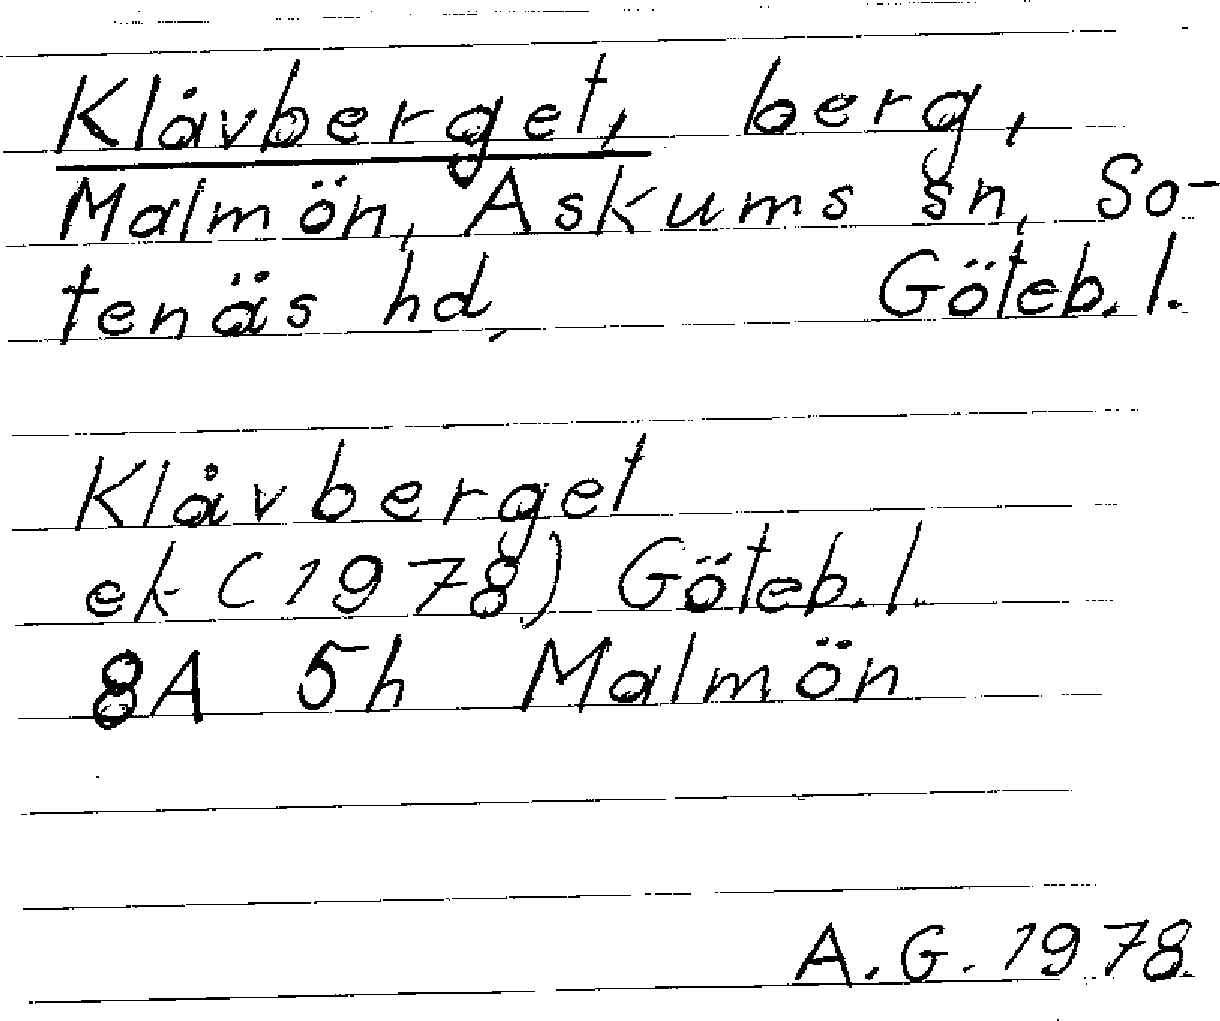 Klåvberget, berg,
Malmön, Askums sn, So-
tenäs hd, Göteb. l.
Klåvberget
ek (1978) Göteb. l.
8A 5h Malmön
A. G. 1978.